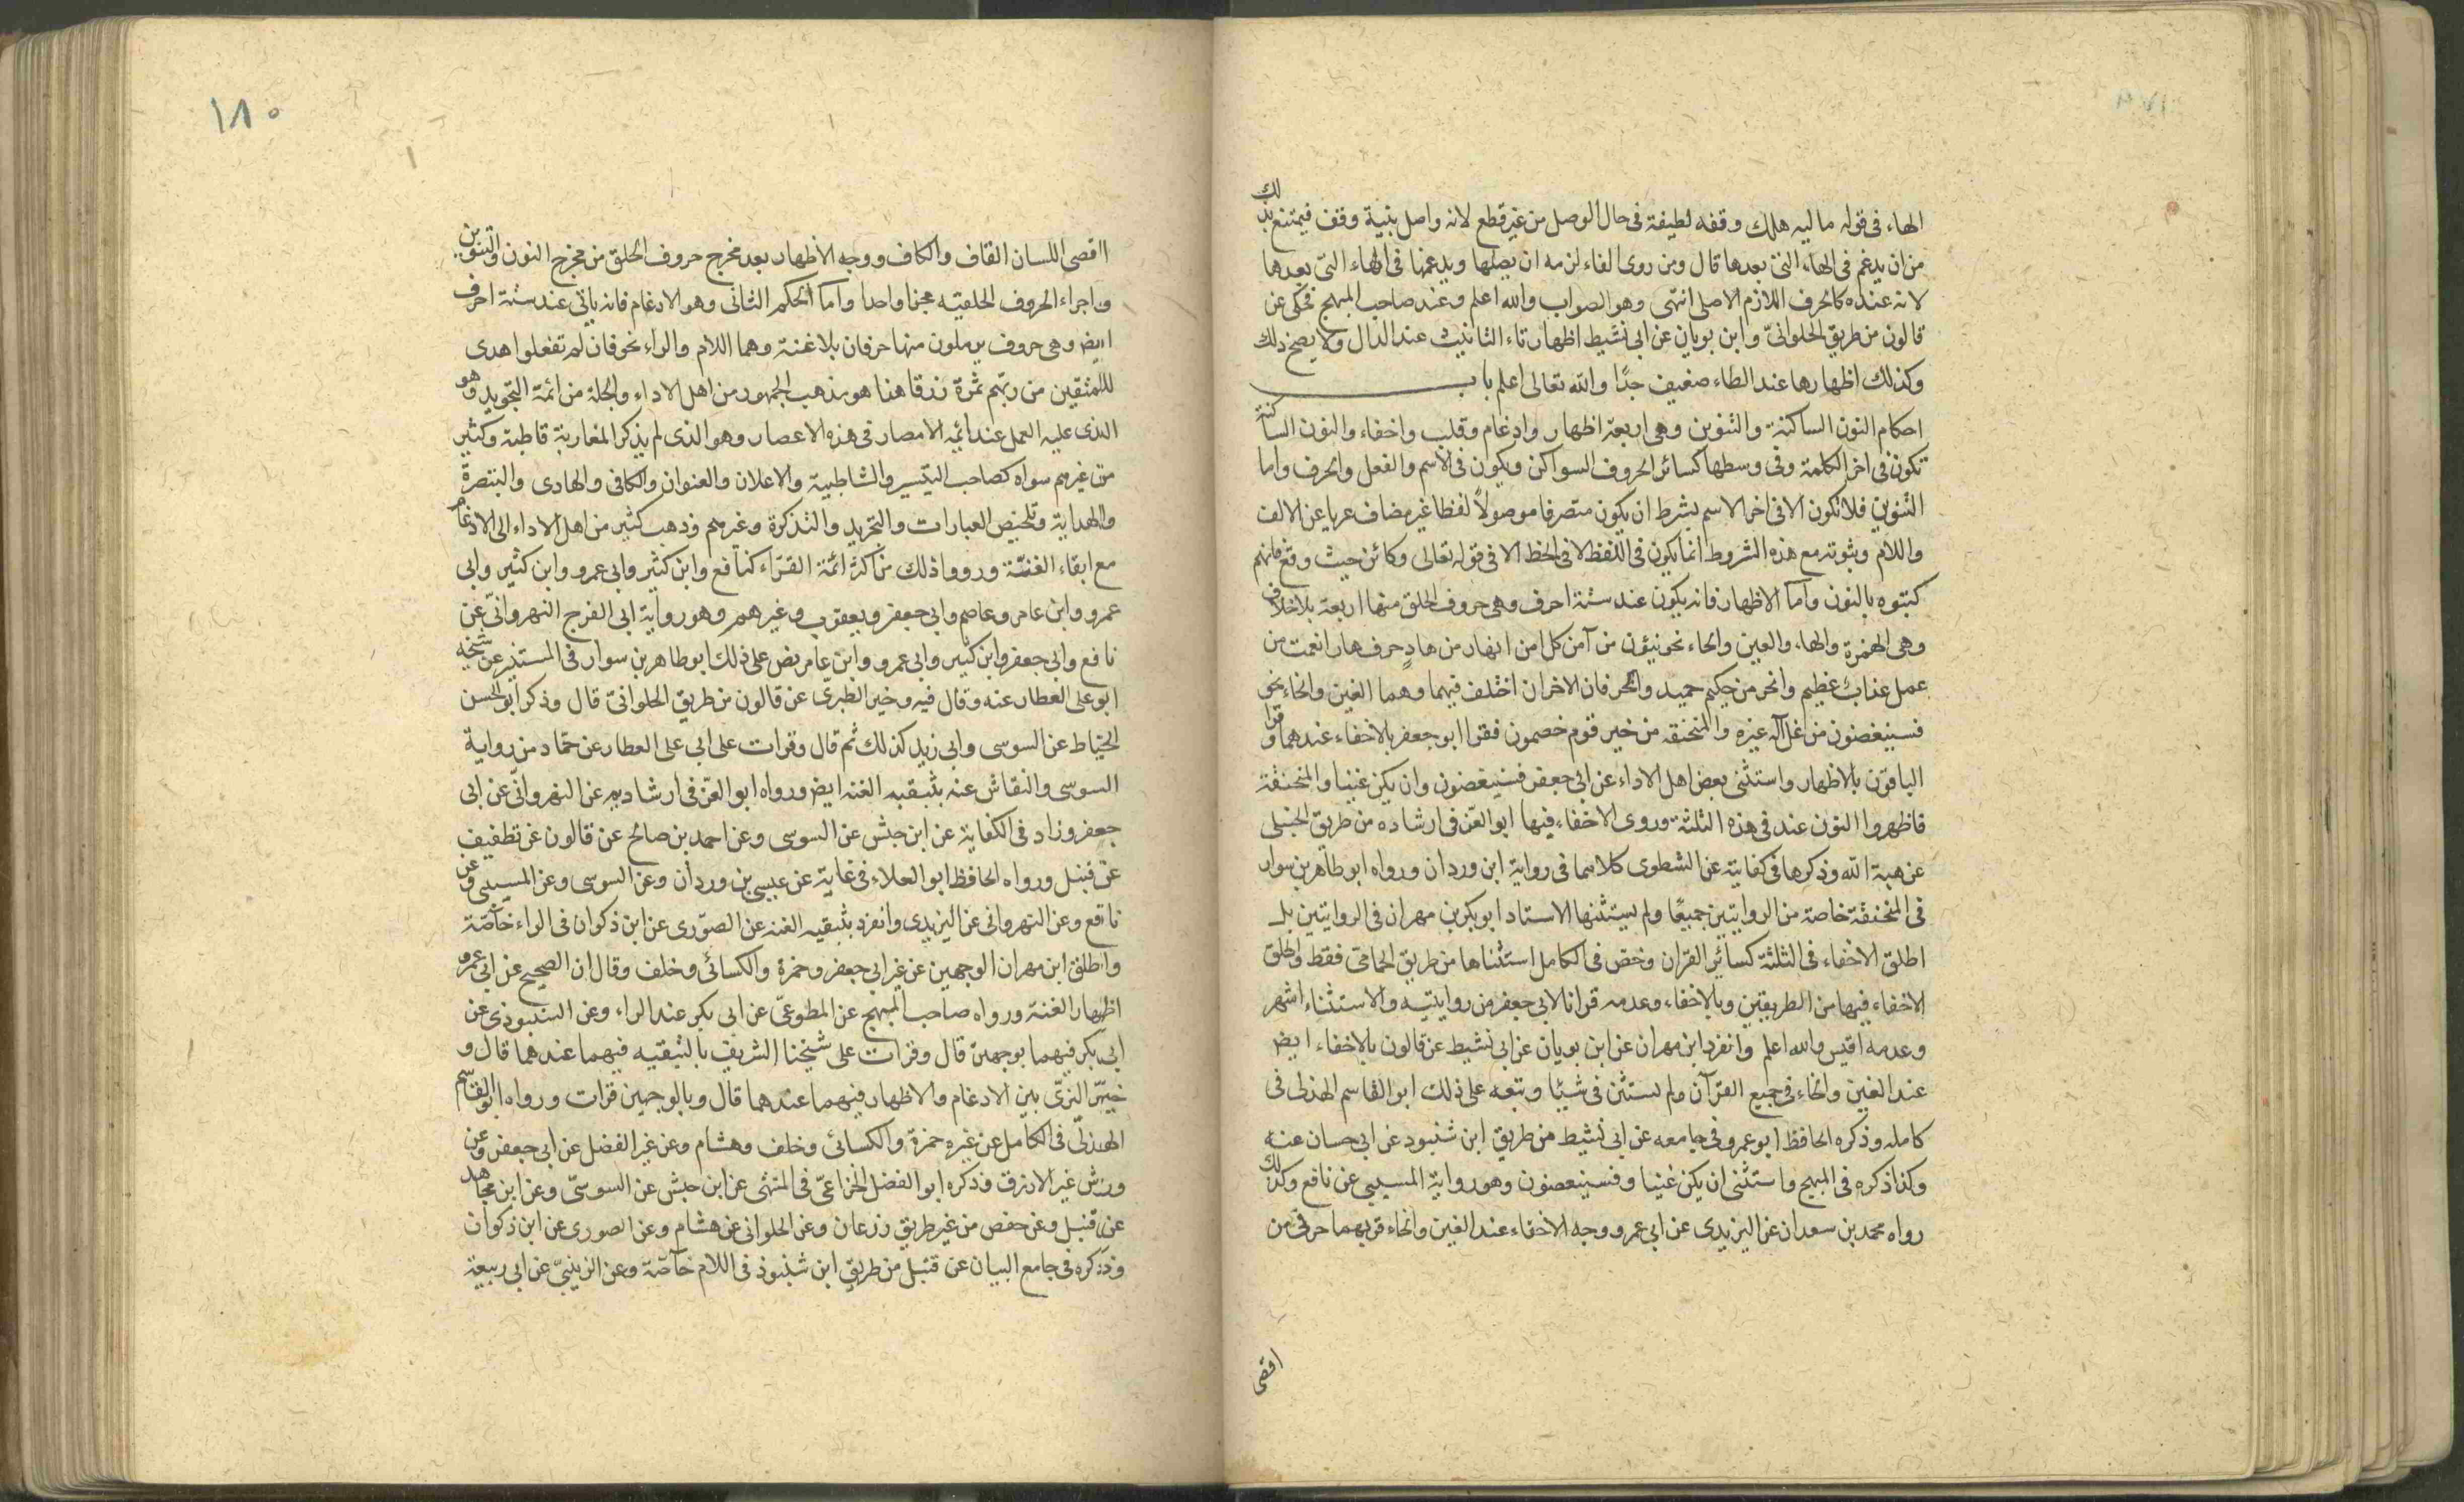 الهاء فى قوله ماليه هلك وقفه لطيفة فى حال الوصل من غير قطع لانه واصل بنية وقف فيمتنع بذلك
من ان يدغم فى الهاء التى بعدها قال ومن روى الغاء لزمه ان يصلها ويدغمها فى الهاء التى بعدها
لانه عنده كالحرف اللازم الاصلى انتهى وهو الصواب والله اعلم وعند صاحب المبهج فحكى عن
قالون من طريق الحلوانىّ وابن بويان عن ابى نشيط اظهار تاء التانيث عند الدال ولا يصح ذلك
وكذلك اظهارها عند الطاء ضعيف جدًا والله تعالى اعلم باب
احكام النون الساكنة والتنوين وهى اربعة اظهار وادغام وقلب واخفاء والنون الساكنة
تكون فى اخر الكلمة وفى وسطها كسائر الحروف السواكن ويكون فى الاسم والفعل والحرف واما
التنوين فلا تكون الا فى اخر الاسم بشرط ان يكون متصرفا موصولًا لفظا غير مضاف عريا عن الالف
واللام وثبوته مع هذه الشروط انما يكون فى اللفظ لا فى الخط الا فى قوله تعالى وكائن حيث وقع فانهم
كتبوه بالنون واما الاظهار فانه يكون عند ستة احرف وهى حروف الحلق منها اربعة بلا خلاف
وهى الهمزة والهاء والعين والحاء نحو ينئون من آمن كل امن انهار من هادٍ جرف هار انعمت من
عمل عذابٌ عظيم وانحر من حكيم حميد والحرفان الاخران اختلف فيهما وهما الغين والخاء نحو
فسينغضون من غل آله غيره والمنخنقه من خير قوم خصمون فقرا ابو جعفر بالاخفاء عندهما وقرا
الباقون بالاظهار واستثنى بعض اهل الاداء عن ابى جعفر فسينغضون وان يكن غنيا والمنخنقة
فاظهروا النون عند فى هذه الثلثة وروى الاخفاء فيها ابو العز فى ارشاده من طريق الحنبلى
عن هبة الله وذكرها فى كفايته عن الشطوى كلاهما فى رواية ابن وردان ورواه ابو طاهر بن سوار
فى المنخنقة خاصة من الروايتين جميعًا ولم يستثنها الاستاد ابو بكر بن مهران فى الروايتين بل
اطلق الاخفاء فى الثلثة كسائر القران وخص فى الكامل استثناها من طريق الحمامى فقط واطلق
الاخفاء فيها من الطريقين وبالاخفاء وعدمه قرانا لابى جعفر من روايتيه والاستثناء اشهر
وعدمه اقيس والله اعلم وانفرد ابن مهران عن ابن بويان عن ابى نشيط عن قالون بالاخفاء ايض
عند الغين والخاء فى جميع القرآن ولم يستثن فى شيئا وتبعه على ذلك ابو القاسم الهذلى فى
كامله وذكره الحافظ ابو عمرو فى جامعه عن ابى نشيط من طريق ابن شنبود عن ابى حسان عنه
وكذا ذكره فى المبهج واستثنى ان يكن غنيا وفسينغضون وهو رواية المسيبى عن نافع وكذلك
رواه محمد بن سعدان عن اليزيدى عن ابى عمرو ووجه الاخفاء عند الغين والخاء قربهما حرفى من
اقصى
١٨٠
ااقصى اللسان القاف والكاف ووجه الاظهار بعد مخرج حروف الحلق من مخرج النون والتنوين
واجراء الحروف الحلقيه مجرا واحدا واما الحكم الثانى وهو الادغام فانه ياتى عند ستة احرف
ايض وهى حروف يرملون منها حرفان بلا غنة وهما اللام والراء نحو فان لم تفعلوا هدى
للمتقين من ربّهم ثمرة رزقا هنا هو مذهب الجمهور من اهل الاداء والجلة من ائمة التجويد وهو
الذى عليه العمل عند ائمه الامصار فى هذه الاعصار وهو الذى لم يذكر المغاربة قاطبة وكثير
من غيرهم سواه كصاحب التيسير والشاطبية والاعلان والعنوان والكافى والهادى والتبصرة
والهداية وتلخيص العبارات والتجريد والتذكرة وغيرهم وذهب كثير من اهل الاداء الى الادغام
مع ابقاء الغنّة ورووا ذلك من اكثر ائمة القرّاء كنافع وابن كثير وابى عمرو وابن كثير وابى
عمرو وابن عامر وعاصم وابى جعفر ويعقوب وغيرهم وهو رواية ابى الفرج النهروانىّ عن
نافع وابى جعفر وابن كثير وابى عمرو وابن عامر نص على ذلك ابو طاهر بن سوار فى المستنير عن شيخه
ابو على العطار عنه وقال فيه وخير الطبرىّ عن قالون من طريق الحلوانىّ قال وذكر ابو الحسن
الخياط عن السوسى وابى زيد كذلك ثم قال وقرات على ابى على العطار عن حمّاد من رواية
السوسى والنقاش عنه بتبقيه الغنه ايض ورواه ابو العزّ فى ارشاديه عن النهروانّى عن ابى
جعفر وزاد فى الكفاية عن ابن حبش عن السوسى وعن احمد بن صالح عن قالون عن تطفيف
عن قنبل ورواه الحافظ ابو العلاء فى غاية عن عيسى بن وردان وعن السوسى وعن المسيبى وعن
نافع وعن النهروانى عن اليزيدى وانفرد بتبقيه الغنه عن الصوّرى عن ابن ذكوان فى الراء خاصّة
واطلق ابن مهران الوجهين عن غير ابى جعفر وحمزة والكسائى وخلف وقال ان الصحيح عن ابى عمرو
اظهار الغنة ورواه صاحب المبهج عن المطوعىّ عن ابى بكر عند الراء وعن الشنبوذى عن
ابى بكر فيهما بوجهين قال وقرات على شيخنا الشريف بالتبقيه فيهما عندهما قال و
خيّر البزّى بين الادغام والاظهار فيهما عندهما قال وبالوجهين قرات ورواه ابو القاسم
الهذلّى فى الكامل عن غير حمزة والكسائى وخلف وهشام وعن غير الفضل عن ابى جعفر وعن
ورش غير الازرق وذكره ابو الفضل الخزاعىّ فى المنتهى عن ابن حبش عن السوسىّ وعن ابن مجاهد
عن قنبل وعن حفص من غير طريق زرعان وعن الحلوانى عن هشام وعن الصورى عن ابن ذكوان
وذكره فى جامع البيان عن قنبل من طريق ابن شنبوذ فى اللام خاصّة وعن الزينبىّ عن ابى ربيعة